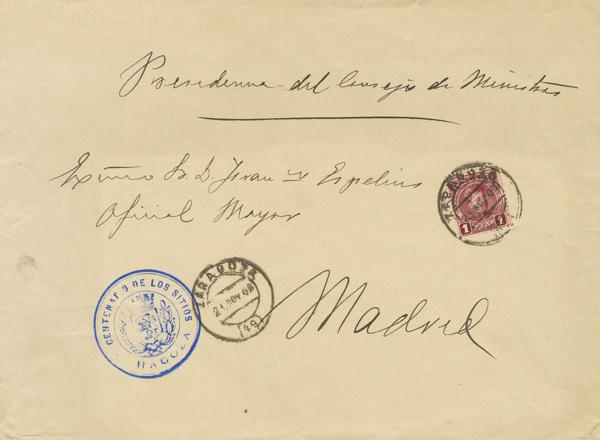 Presidencia del Consejo de Ministros
Exmo Sr. D. Juan Espelius
Oficial Mayor
Madrid
ZARAGOZA
1 1
ZARAGOZA
21 NOV 08
(49)
CENTENARIO DE LOS SITIOS
RAGOZA